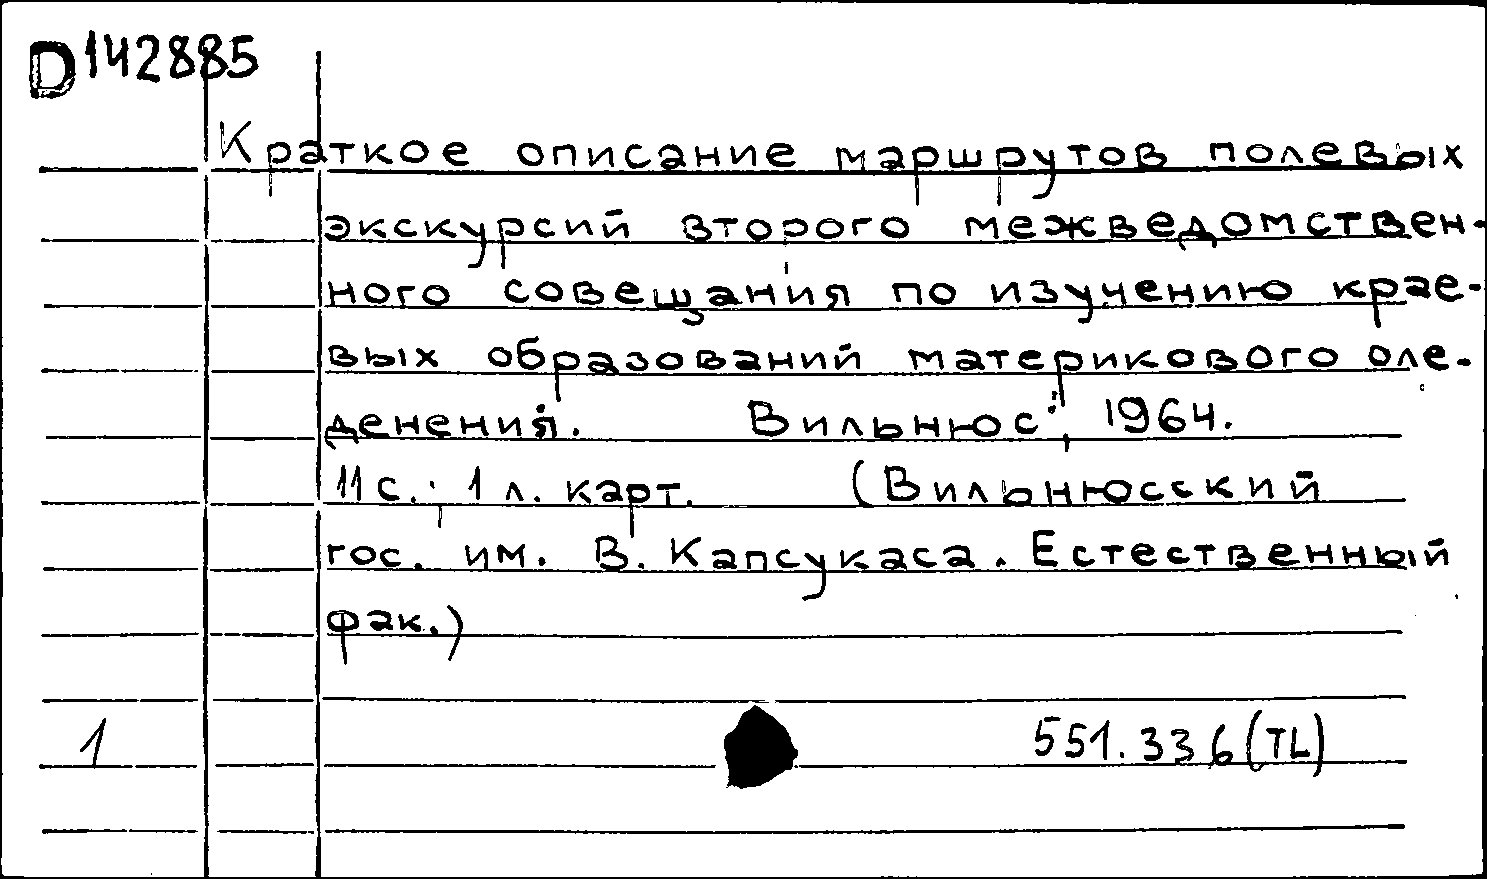 D142885
Краткое описание маршрутов полевых
экскурсий второго межведомствен-
ного совещания по изучению крае-
вых образований материкового оле-
денения. Вильнюс, 1964.
11 с.; 1 л. карт. (Вильнюсский
гос. им. В. Капсукаса. Естественный
фак.)
1 551.336(TL)